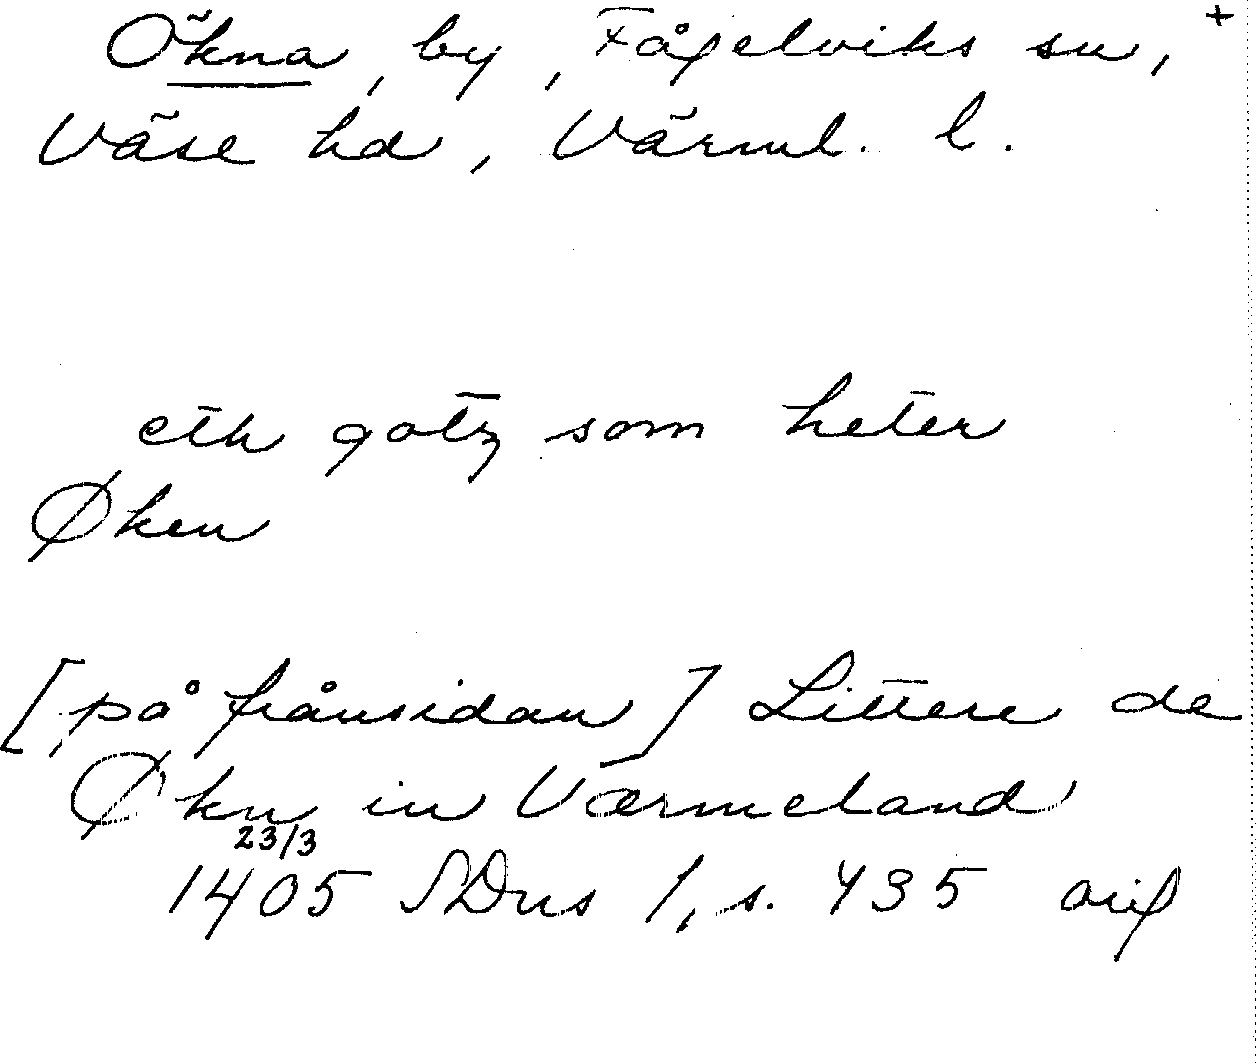 Ökna, by, Fågelviks sn, +
Väse hd, Värml. l.
eth gotz som heter
Øken
[på frånsidan] Littere de
Økn in Værmeland
23/3
1405 SDns 1, s. 435 orig